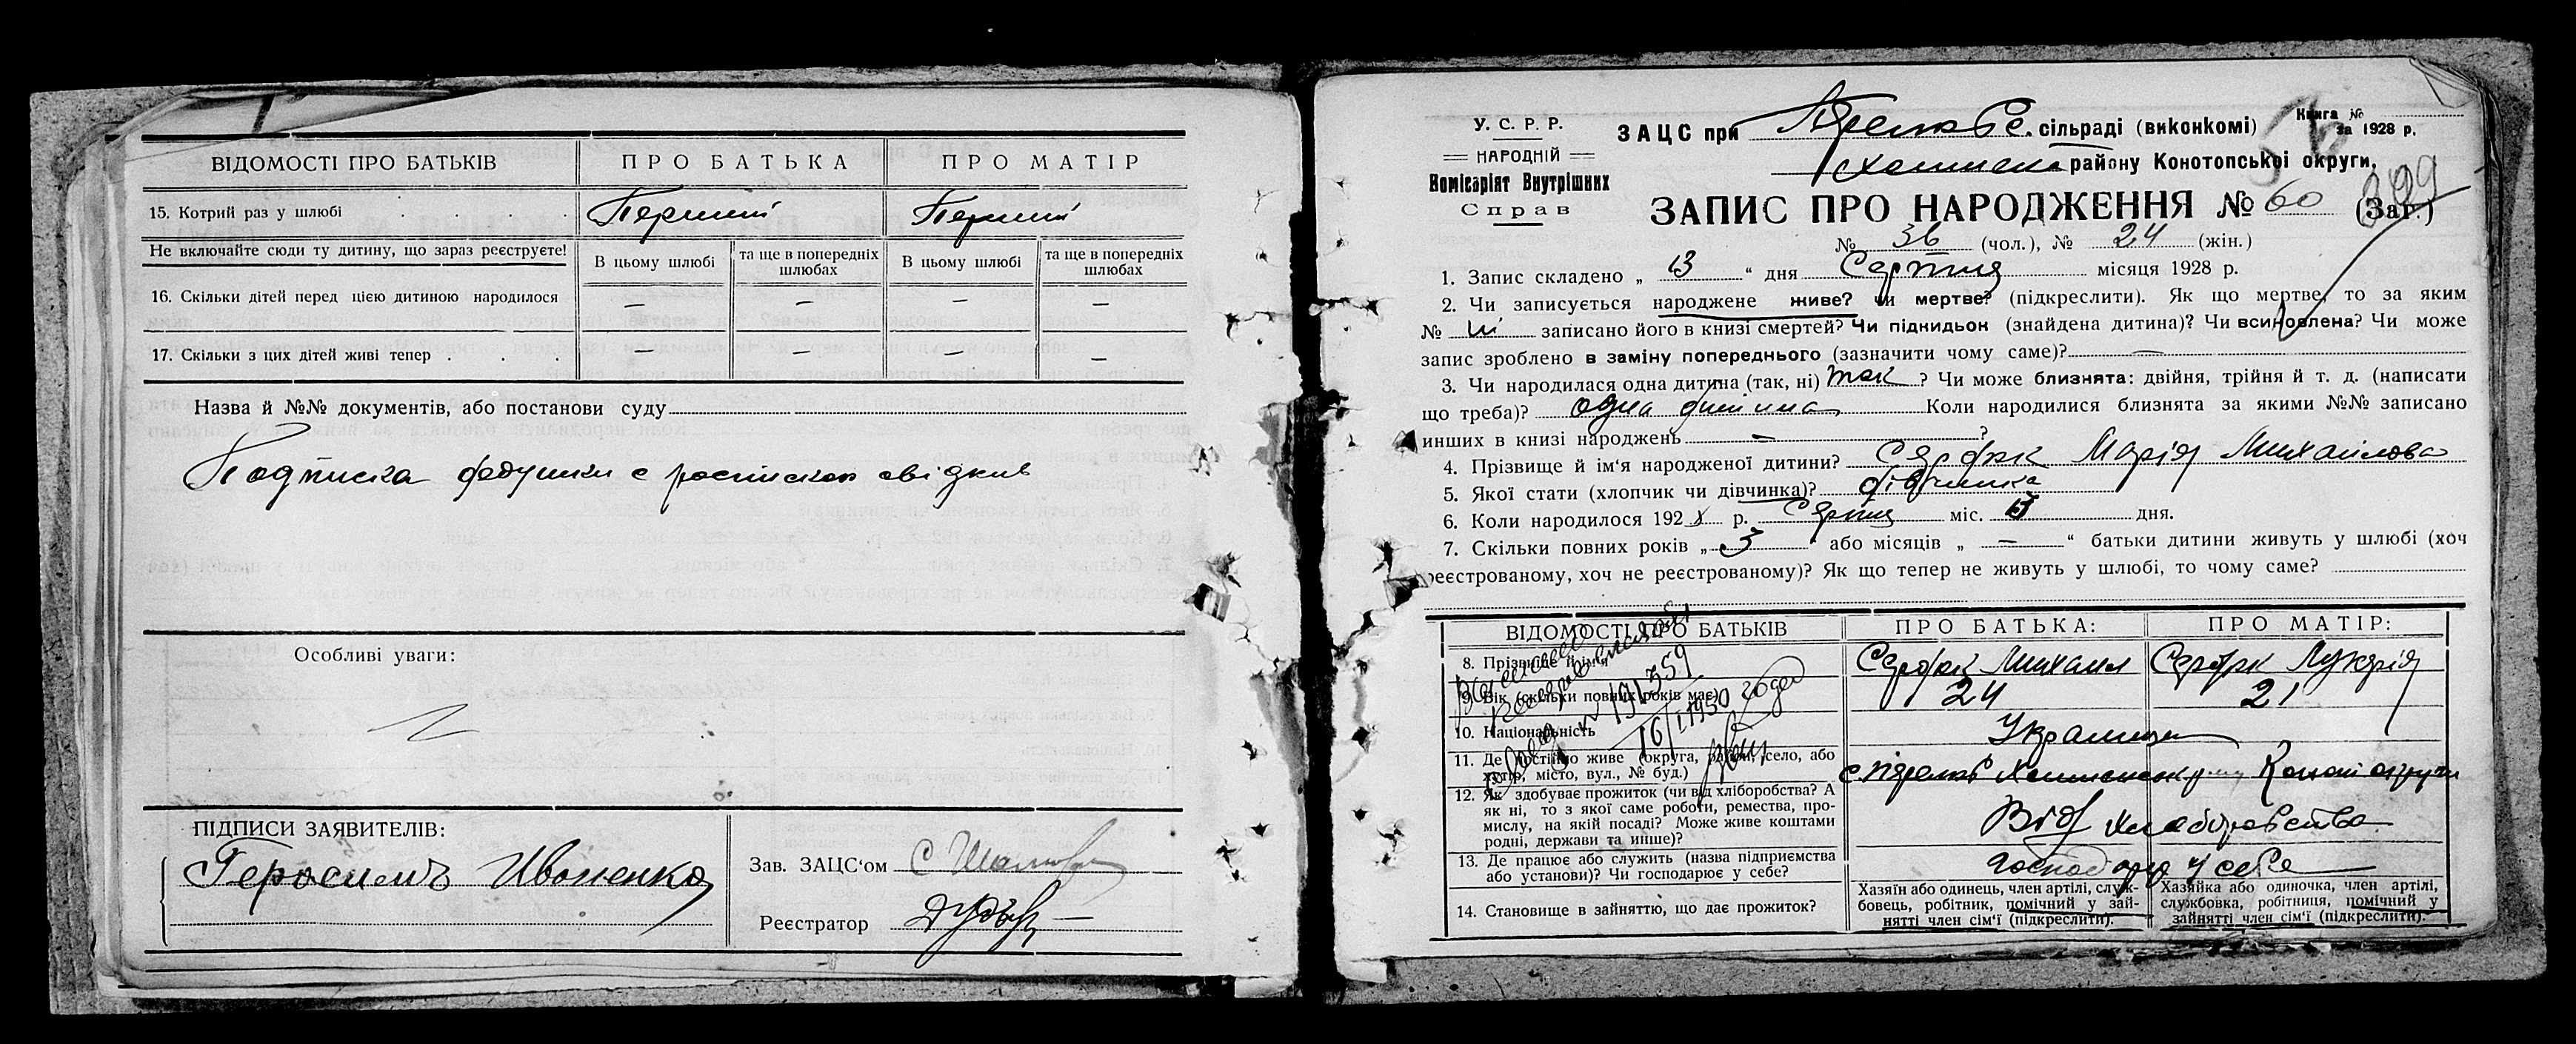 ВІДОМОСТІ ПРО БАТЬКІВ
ПРО БАТЬКА
ПРО МАТІР
15. Котрий раз у шлюбі
Перший
Перший
Не включайте сюди ту дитину, що зараз реєструєте!
В цьому шлюбі
та ще в попередніх шлюбах
В цьому шлюбі
та ще в попередніх шлюбах
16. Скільки дітей перед цією дитиною народилося
— — — —
17. Скільки з цих дітей живі тепер
— — — —
Назва й №№ документів, або постанови суду
Подписка
Особливі уваги:
ПІДПИСИ ЗАЯВИТЕЛІВ:
Герасимъ Ивоненко
Зав. ЗАЦС‘ом
Реєстратор
У. С. Р. Р.
НАРОДНІЙ
Комісаріят Внутрішних
Справ
ЗАЦС при сільраді (виконкомі)
Книга №
за 1928 р.
району Конотопської округи.
ЗАПИС ПРО НАРОДЖЕННЯ № 60 (Заг.)
399
№ 36 (чол.), № 24 (жін.)
1. Запис складено „ 13 “ дня Серпня місяця 1928 р.
2. Чи записується народжене живе? чи мертве? (підкреслити). Як що мертве, то за яким
№ записано його в книзі смертей? Чи підкидьок (знайдена дитина)? Чи всиновлена? Чи може
запис зроблено в заміну попереднього (зазначити чому саме)? —
3. Чи народилася одна дитина (так, ні) так ? Чи може близнята: двійня, трійня й т. д. (написати
що треба)? одна дитина Коли народилися близнята за якими №№ записано
инших в книзі народжень — ?
4. Прізвище й ім‘я народженої дитини? Сердюк Марія Михайлова
5. Якої статі (хлопчик чи дівчинка)? дівчинка
6. Коли народилося 192 р. Серпня міс. дня.
7. Скільки повних років „ 3 “ або місяців „ — “ батьки дитини живуть у шлюбі (хоч
реєстрованому, хоч не реєстрованому)? Як що тепер не живуть у шлюбі, то чому саме?
ВІДОМОСТІ ПРО БАТЬКІВ
ПРО БАТЬКА:
ПРО МАТІР:
8. Прізвище й ім‘я
Сердюк Михаил
Сердюк Лукерія
9. Вік (скільки повних років має)
24
21
10. Національність
11. Де постійно живе (округа, район, село, або
хутір, місто, вул., № буд.)
12. Як здобуває прожиток (чи від хліборобства? А
як ні, то з якої саме роботи, ремества, про-
мислу, на якій посаді? Може живе коштами
родні, держави та инше)?
Від хліборобства
13. Де працює або служить (назва підприємства
або установи)? Чи господарює у себе?
господарю у себе
14. Становище в зайняттю, що дає прожиток?
Хазяїн або одинець, член артілі, служ-
бовець, робітник, помічний у зай-
нятті член сім‘ї (підкреслити).
Хазяйка або одиночка, член артілі,
службовка, робітниця, помічний у
зайнятті член сім‘ї (підкреслити).
191359
16/I 1950 года